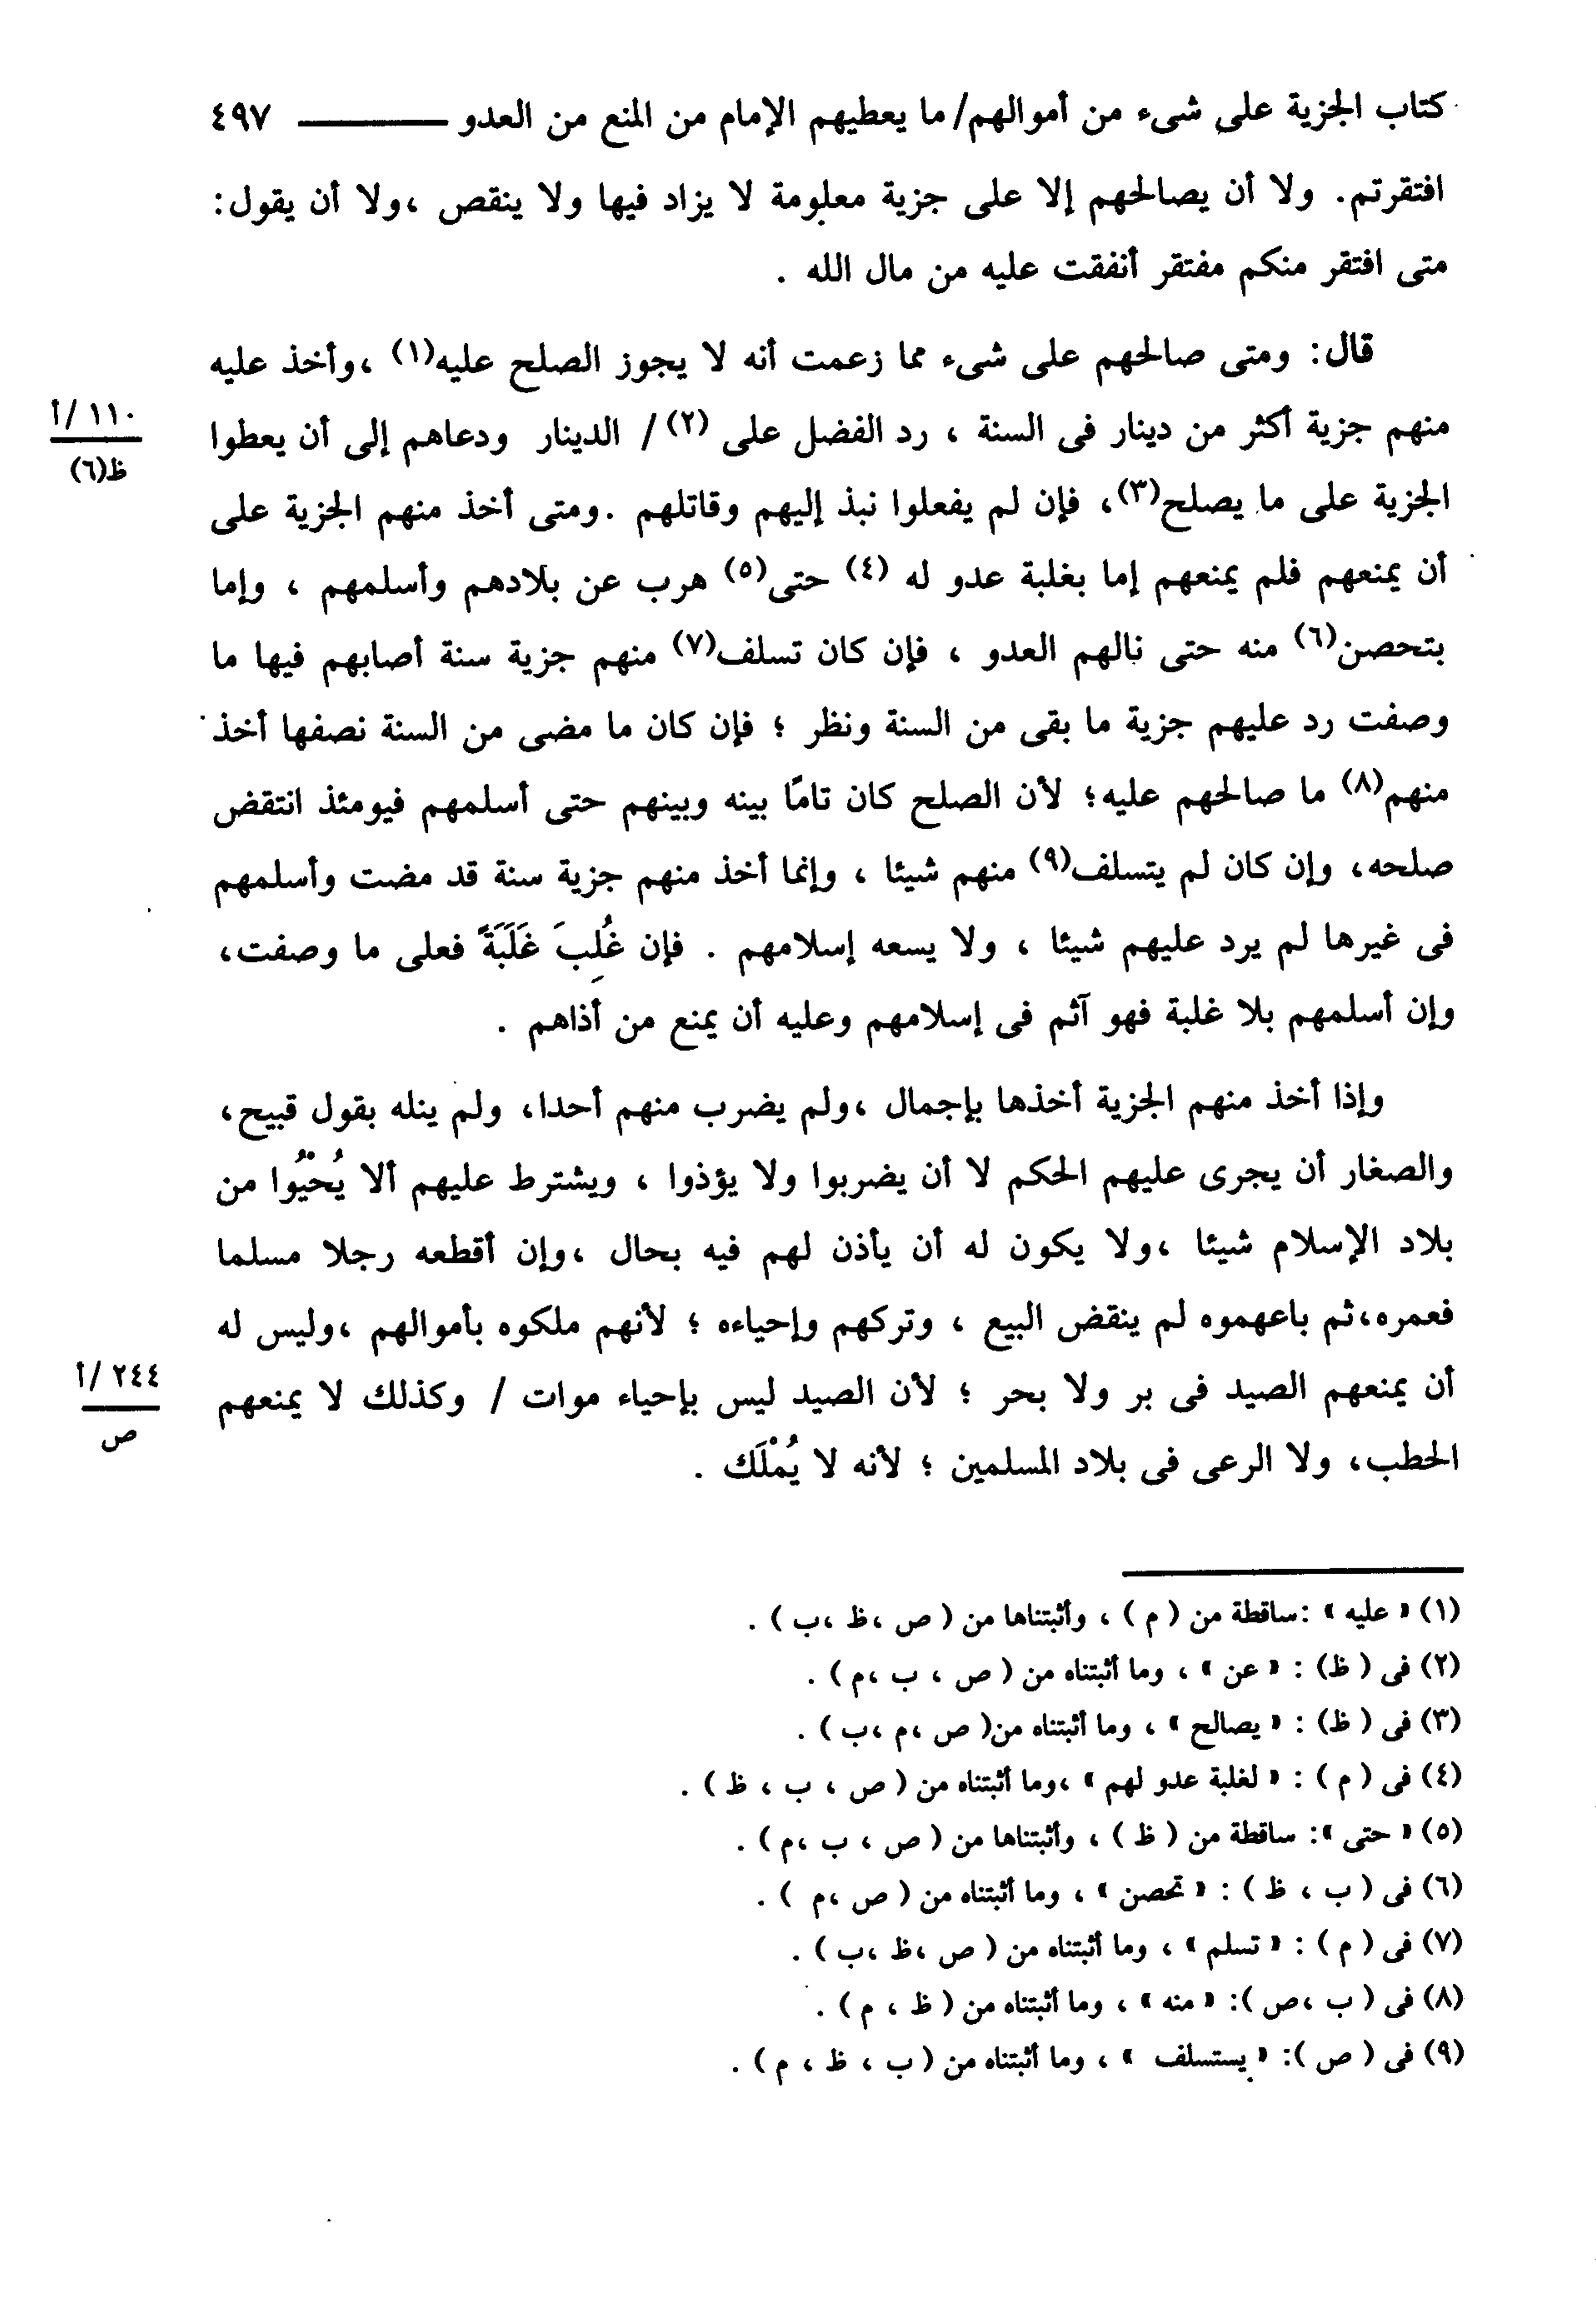 كتاب الجزية على شىء من أموالهم/ ما يعطيهم الإمام من المنع من العدو ــــــــ ٤٩٧
افتقرتم. ولا أن يصالحهم إلا على جزية معلومة لا يزاد فيها ولا ينقص ،ولا أن يقول:
متى افتقر منكم مفتقر أنفقت عليه من مال الله .
قال: ومتى صالحهم على شىء مما زعمت أنه لا يجوز الصلح عليه(١) ،وأخذ عليه
منهم جزية أكثر من دينار فى السنة ، رد الفضل على (٢) / الدينار ودعاهم إلى أن يعطوا
١١٠ /أ
ظ(٦)
الجزية على ما يصلح(٣)، فإن لم يفعلوا نبذ إليهم وقاتلهم .ومتى أخذ منهم الجزية على
أن يمنعهم فلم يمنعهم إما بغلبة عدو له (٤) حتى(٥) هرب عن بلادهم وأسلمهم ، وإما
بتحصن(٦) منه حتى نالهم العدو ، فإن كان تسلف(٧) منهم جزية سنة أصابهم فيها ما
وصفت رد عليهم جزية ما بقى من السنة ونظر ؛ فإن كان ما مضى من السنة نصفها أخذ
منهم(٨) ما صالحهم عليه؛ لأن الصلح كان تامًا بينه وبينهم حتى أسلمهم فيومئذ انتقض
صلحه، وإن كان لم يتسلف(٩) منهم شيئا ، وإنما أخذ منهم جزية سنة قد مضت وأسلمهم
فى غيرها لم يرد عليهم شيئا ، ولا يسعه إسلامهم . فإن غُلِبَ غَلَبَةً فعلى ما وصفت،
وإن أسلمهم بلا غلبة فهو آثم فى إسلامهم وعليه أن يمنع من أذاهم .
وإذا أخذ منهم الجزية أخذها بإجمال ،ولم يضرب منهم أحدا، ولم ينله بقول قبيح،
والصغار أن يجرى عليهم الحكم لا أن يضربوا ولا يؤذوا ، ويشترط عليهم ألا يُحْيُوا من
بلاد الإسلام شيئا ،ولا يكون له أن يأذن لهم فيه بحال ،وإن أقطعه رجلا مسلما
فعمره،ثم باعهموه لم ينقض البيع ، وتركهم وإحياءه ؛ لأنهم ملكوه بأموالهم ،وليس له
أن يمنعهم الصيد فى بر ولا بحر ؛ لأن الصيد ليس بإحياء موات / وكذلك لا يمنعهم
٢٤٤ /أ
ص
الحطب، ولا الرعى فى بلاد المسلمين ؛ لأنه لا يُمْلَك .
(١) « عليه » :ساقطة من ( م ) ، وأثبتناها من ( ص ،ظ ،ب ) .
(٢) فى ( ظ) : « عن » ، وما أثبتناه من ( ص ، ب ،م ) .
(٣) فى ( ظ) : « يصالح » ، وما أثبتناه من( ص ،م ،ب ) .
(٤) فى ( م ) : « لغلبة عدو لهم » ،وما أثبتناه من ( ص ، ب ، ظ ) .
(٥) « حتى »: ساقطة من ( ظ ) ، وأثبتناها من ( ص ، ب ،م ) .
(٦) فى ( ب ، ظ ) : « تحصن » ، وما أثبتناه من ( ص ،م ) .
(٧) فى ( م ) : « تسلم » ، وما أثبتناه من ( ص ،ظ ،ب ) .
(٨) فى ( ب ،ص ): « منه » ، وما أثبتناه من ( ظ ، م ) .
(٩) فى ( ص ): « يستسلف » ، وما أثبتناه من ( ب ، ظ ، م ) .